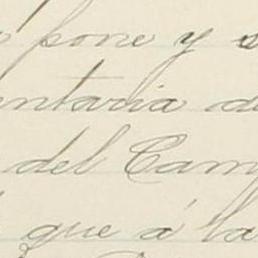 pone y s
entaria de
del Cam
que á la